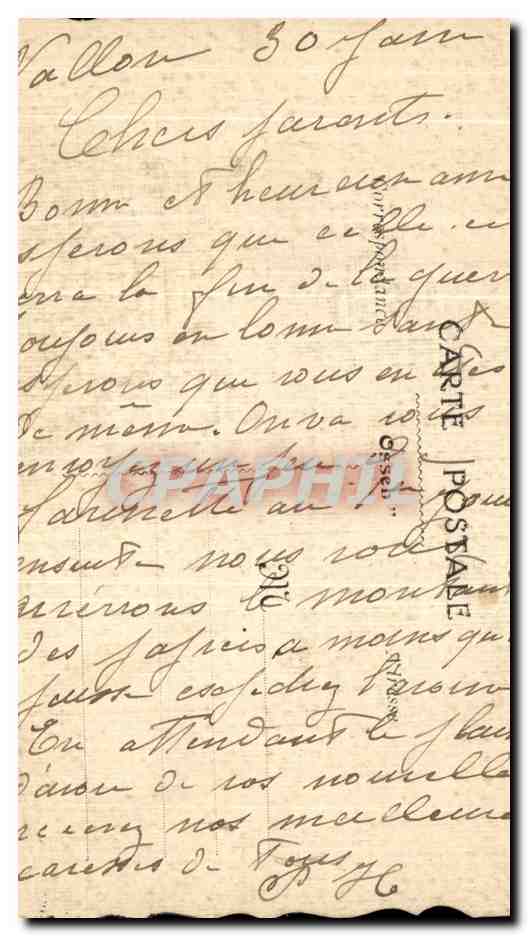 Vallon 30 Janv
Chers parents.
Bonne et heureuse anné
espérons que celle-ci
verra la fin de la guerr
toujours en bonne santé
espérons que vous en êtes
de même. On va vous
envoyer un peu de
farinette au 1er jour
ensuite nous vous
enverrons le montant
des papiers a moins qu
puisse expédiez
En attendant le plais
d'avoir de vos nouvelle
recevez nos meilleure
caresses de Tous
P H
CARTE POSTALE
Correspondance
Adresse
Osseo"
M
CPAPHIL